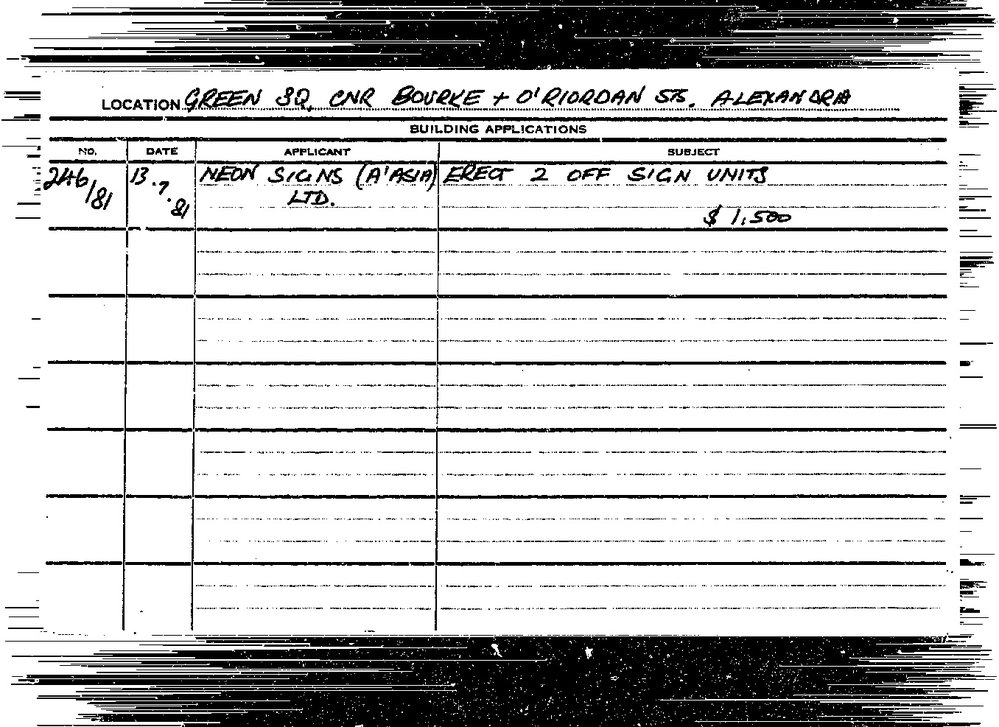 LOCATION GREEN SQ. CNR BOURKE + O'RIORDAN STS. ALEXANDRA
BUILDING APPLICATIONS
NO. DATE APPLICANT SUBJECT
246/81 13.7.81 NEON SIGNS (A'ASIA) ERECT 2 OFF SIGN UNITS
LTD.
$ 1,500